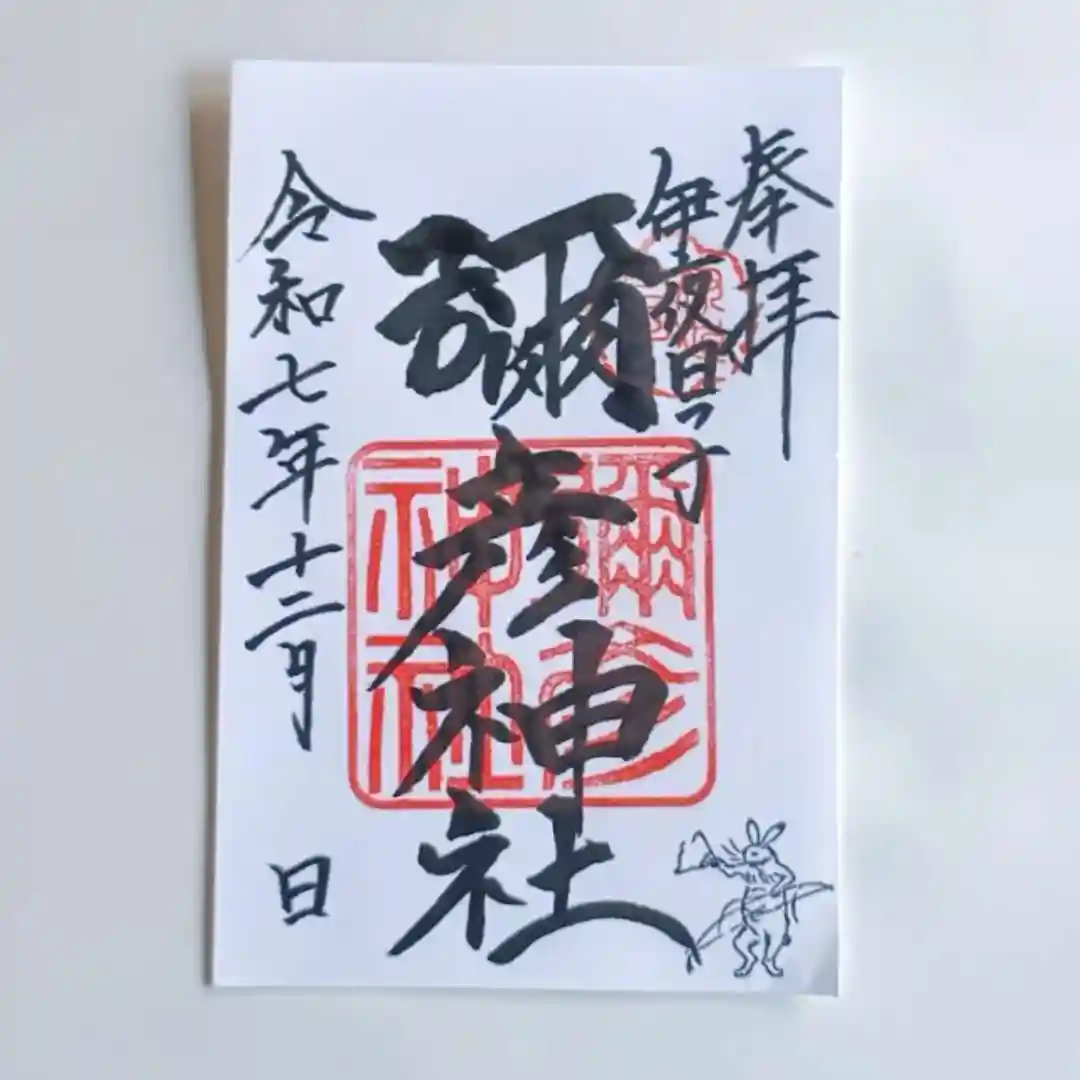 奉拝
伊夜日子
彌彦神社
彌彦神社
令和七年十二月 日